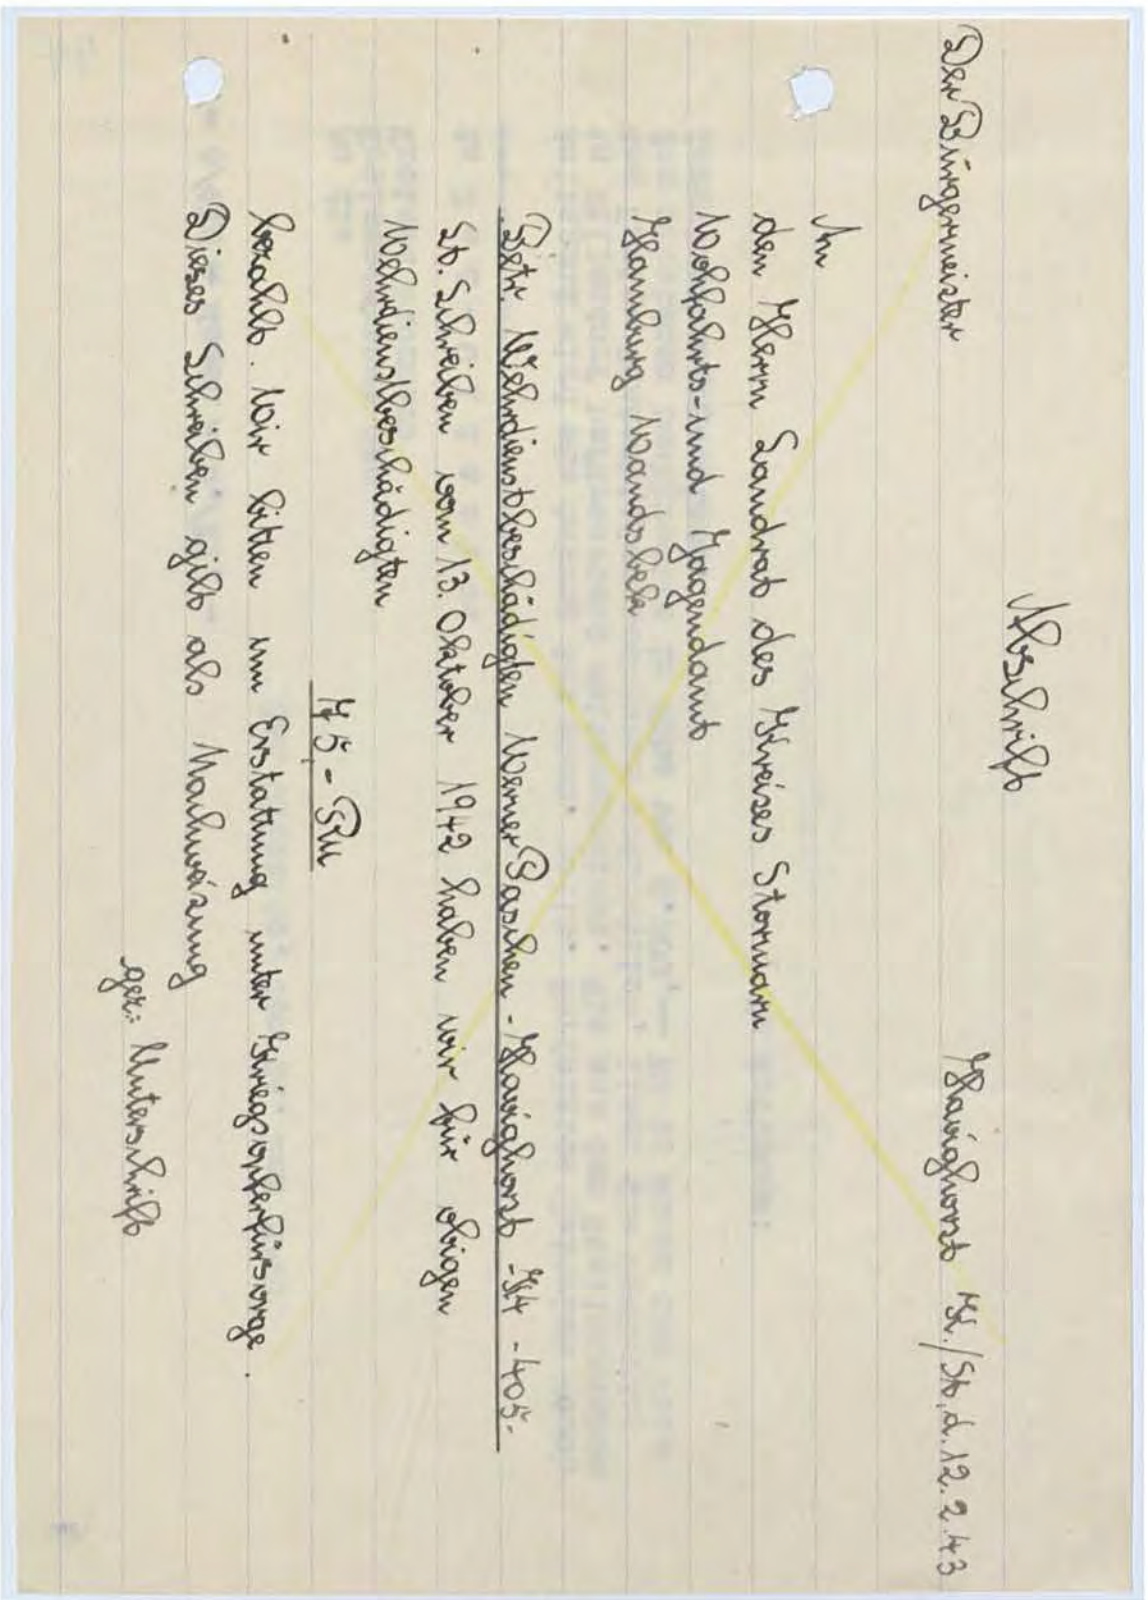 Abschrift
Der Bürgermeister Havighorst Kr./St., d. 12.2.43
An
den Herrn Landrat des Kreises Stormarn
Wohlfahrts-und Jugendamt
Hamburg Wandsbek
Betr. Wehrdienstbeschädigten Werner Paschen - Havighorst - K4 - 405.-
Lt. Schreiben vom 13. Oktober 1942 haben wir für obigen
Wehrdienstbeschädigten
75 - RM
bezahlt. Wir bitten um Erstattung unter Kriegsopferfürsorge.
Dieses Schreiben gilt als Nachweisung
gez.: Unterschrift